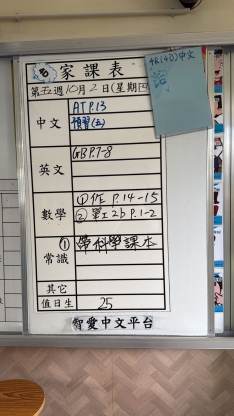 家課表
第五週10月2日(星期四
4R(4D)中文
中文 AT P.13
預習(五)
英文 GB P.7-8
數學 ①作 P.14-15
② 單工2b P.1-2
常識 ① 帶科學課本
其它
值日生 25
智愛中文平台